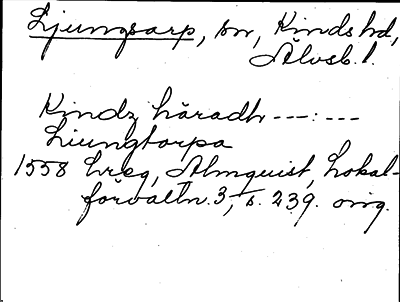 Ljungsarp, sn, Kinds hd,
Älvsb. l.
Kindz häradh ---:---
Liungtorpa
1558 hreg, Almquist, Lokal-
förvaltn. 3, s. 239. orig.